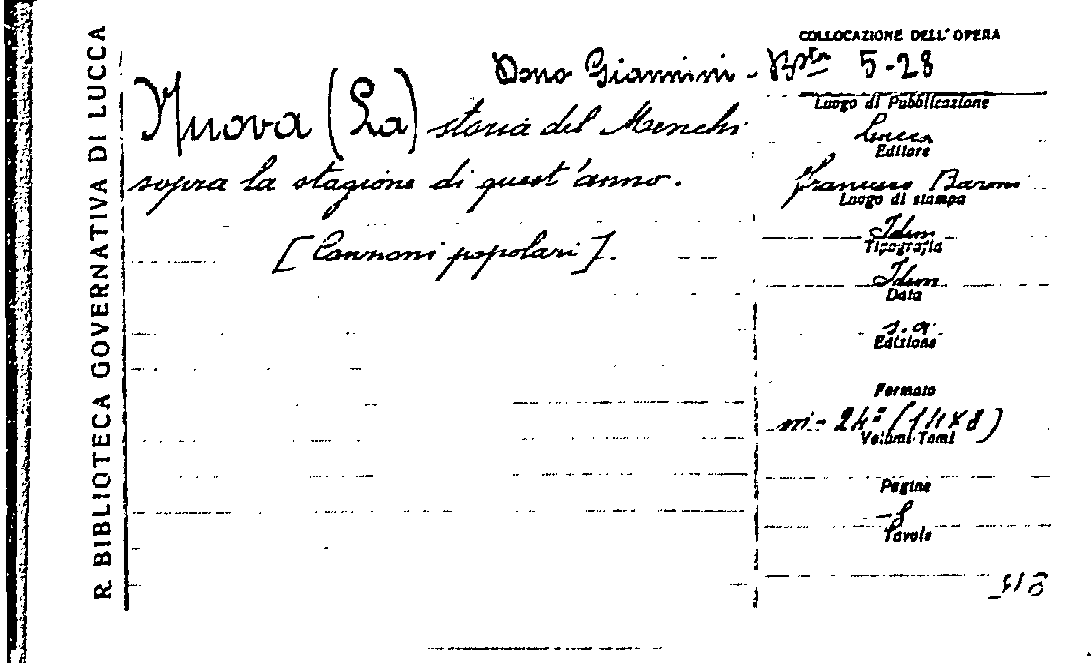 R. BIBLIOTECA GOVERNATIVA DI LUCCA
COLLOCAZIONE DELL'OPERA
Dono Giannini - Bsta 5-28
Nuova (La) storia del Menchi
sopra la stagione di quest'anno.
[Canzoni popolari].
Luogo di Pubblicazione
Lucca
Editore
Francesco Baroni
Luogo di stampa
Idem
Tipografia
Idem
Data
s. a.
Edizione
Formato
in-24° (14x8)
Volumi-Tomi
Pagine
8
Tavole